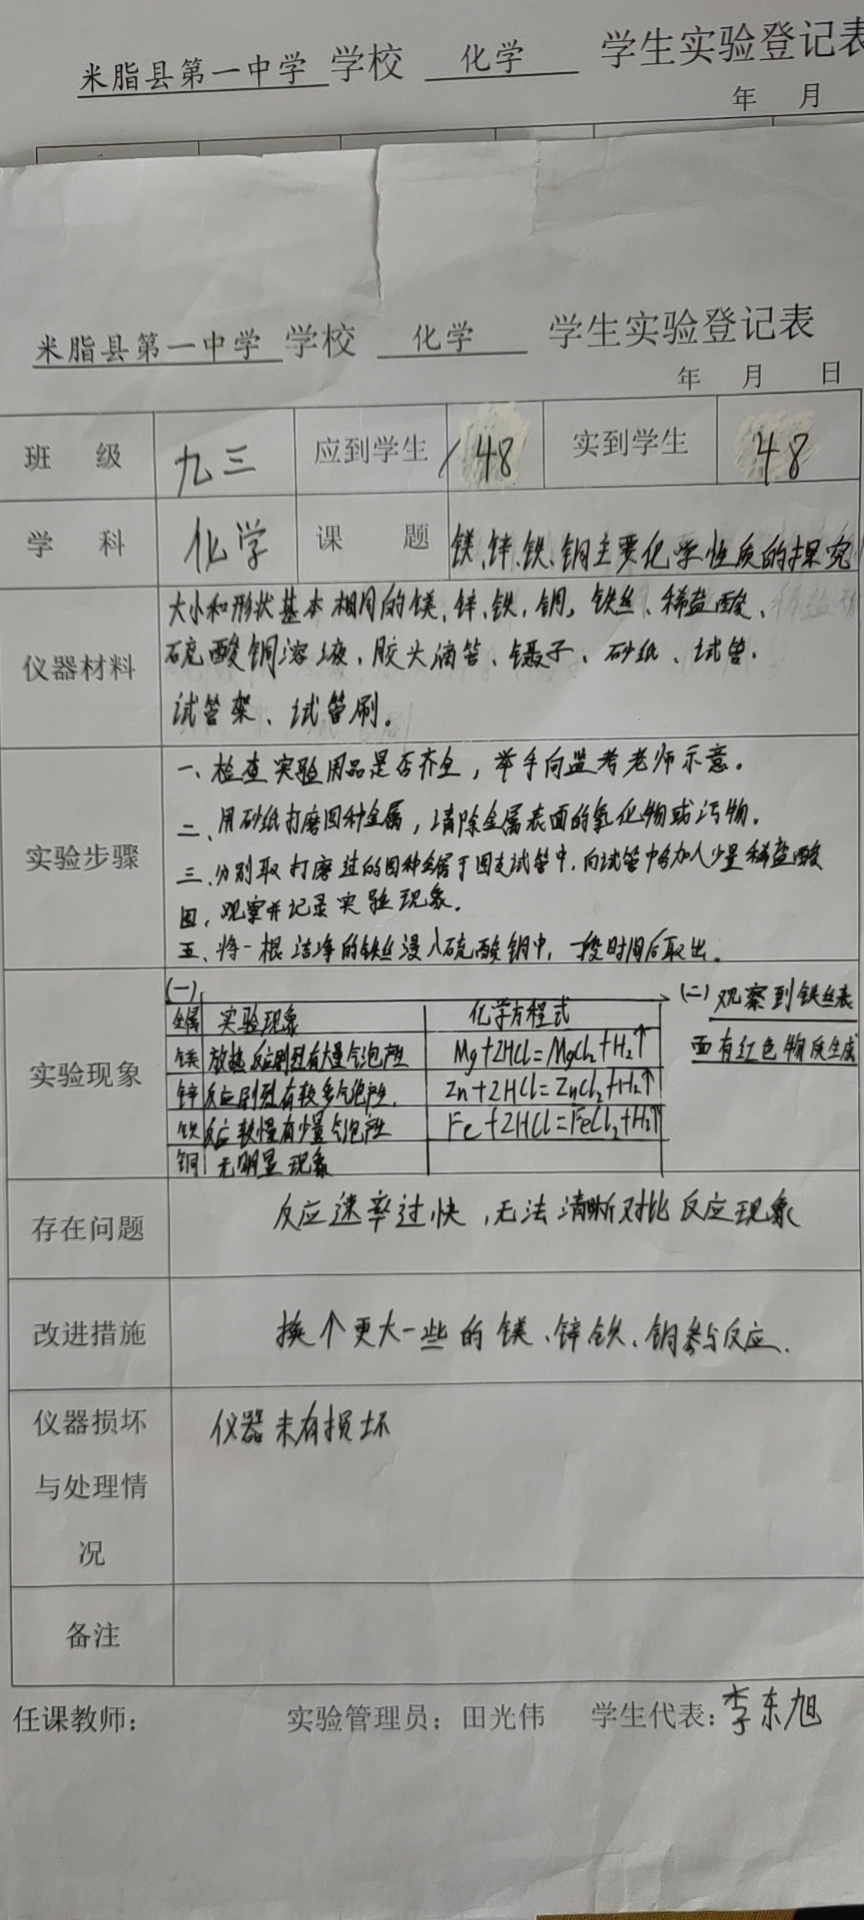 米脂县第一中学 学校 化学 学生实验登记表
年 月
米脂县第一中学 学校 化学 学生实验登记表
年 月 日
班 级 九三 应到学生 48 实到学生 48
学 科 化学 课 题 镁、锌、铁、铜主要化学性质的探究
仪器材料
大小和形状基本相同的镁、锌、铁、铜,铁丝、稀盐酸、
硫酸铜溶液、胶头滴管、镊子、砂纸、试管、
试管架、试管刷。
实验步骤
一、检查实验用品是否齐全,举手向监考老师示意。
二、用砂纸打磨四种金属,清除金属表面的氧化物或污物。
三、分别取打磨过的四种金属于四支试管中,向试管中各加入少量稀盐酸
四,观察并记录实验现象。
五、将一根洁净的铁丝浸入硫酸铜中,一段时间后取出。
实验现象
(一)
金属 实验现象 化学方程式
镁 放热反应剧烈有大量气泡产生 Mg+2HCl=MgCl₂+H₂↑
锌 反应剧烈有较多气泡产生. Zn+2HCl=ZnCl₂+H₂↑
铁 反应较慢有少量气泡产生 Fe+2HCl=FeCl₂+H₂↑
铜 无明显现象
(二)观察到铁丝表
面有红色物质生成
存在问题 反应速率过快,无法清晰对比反应现象
改进措施 换个更大一些的镁、锌、铁、铜参与反应.
仪器损坏
与处理情
况
仪器未有损坏
备注
任课教师: 实验管理员:田光伟 学生代表:李东旭